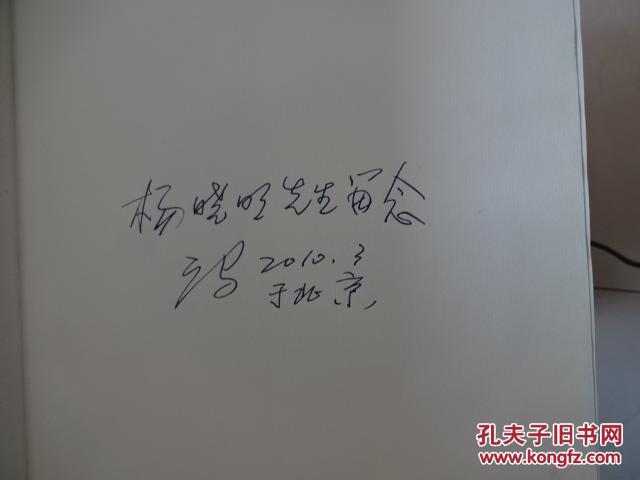 杨晓明先生留念
2010.3
于北京
孔夫子旧书网
www.kongfz.com